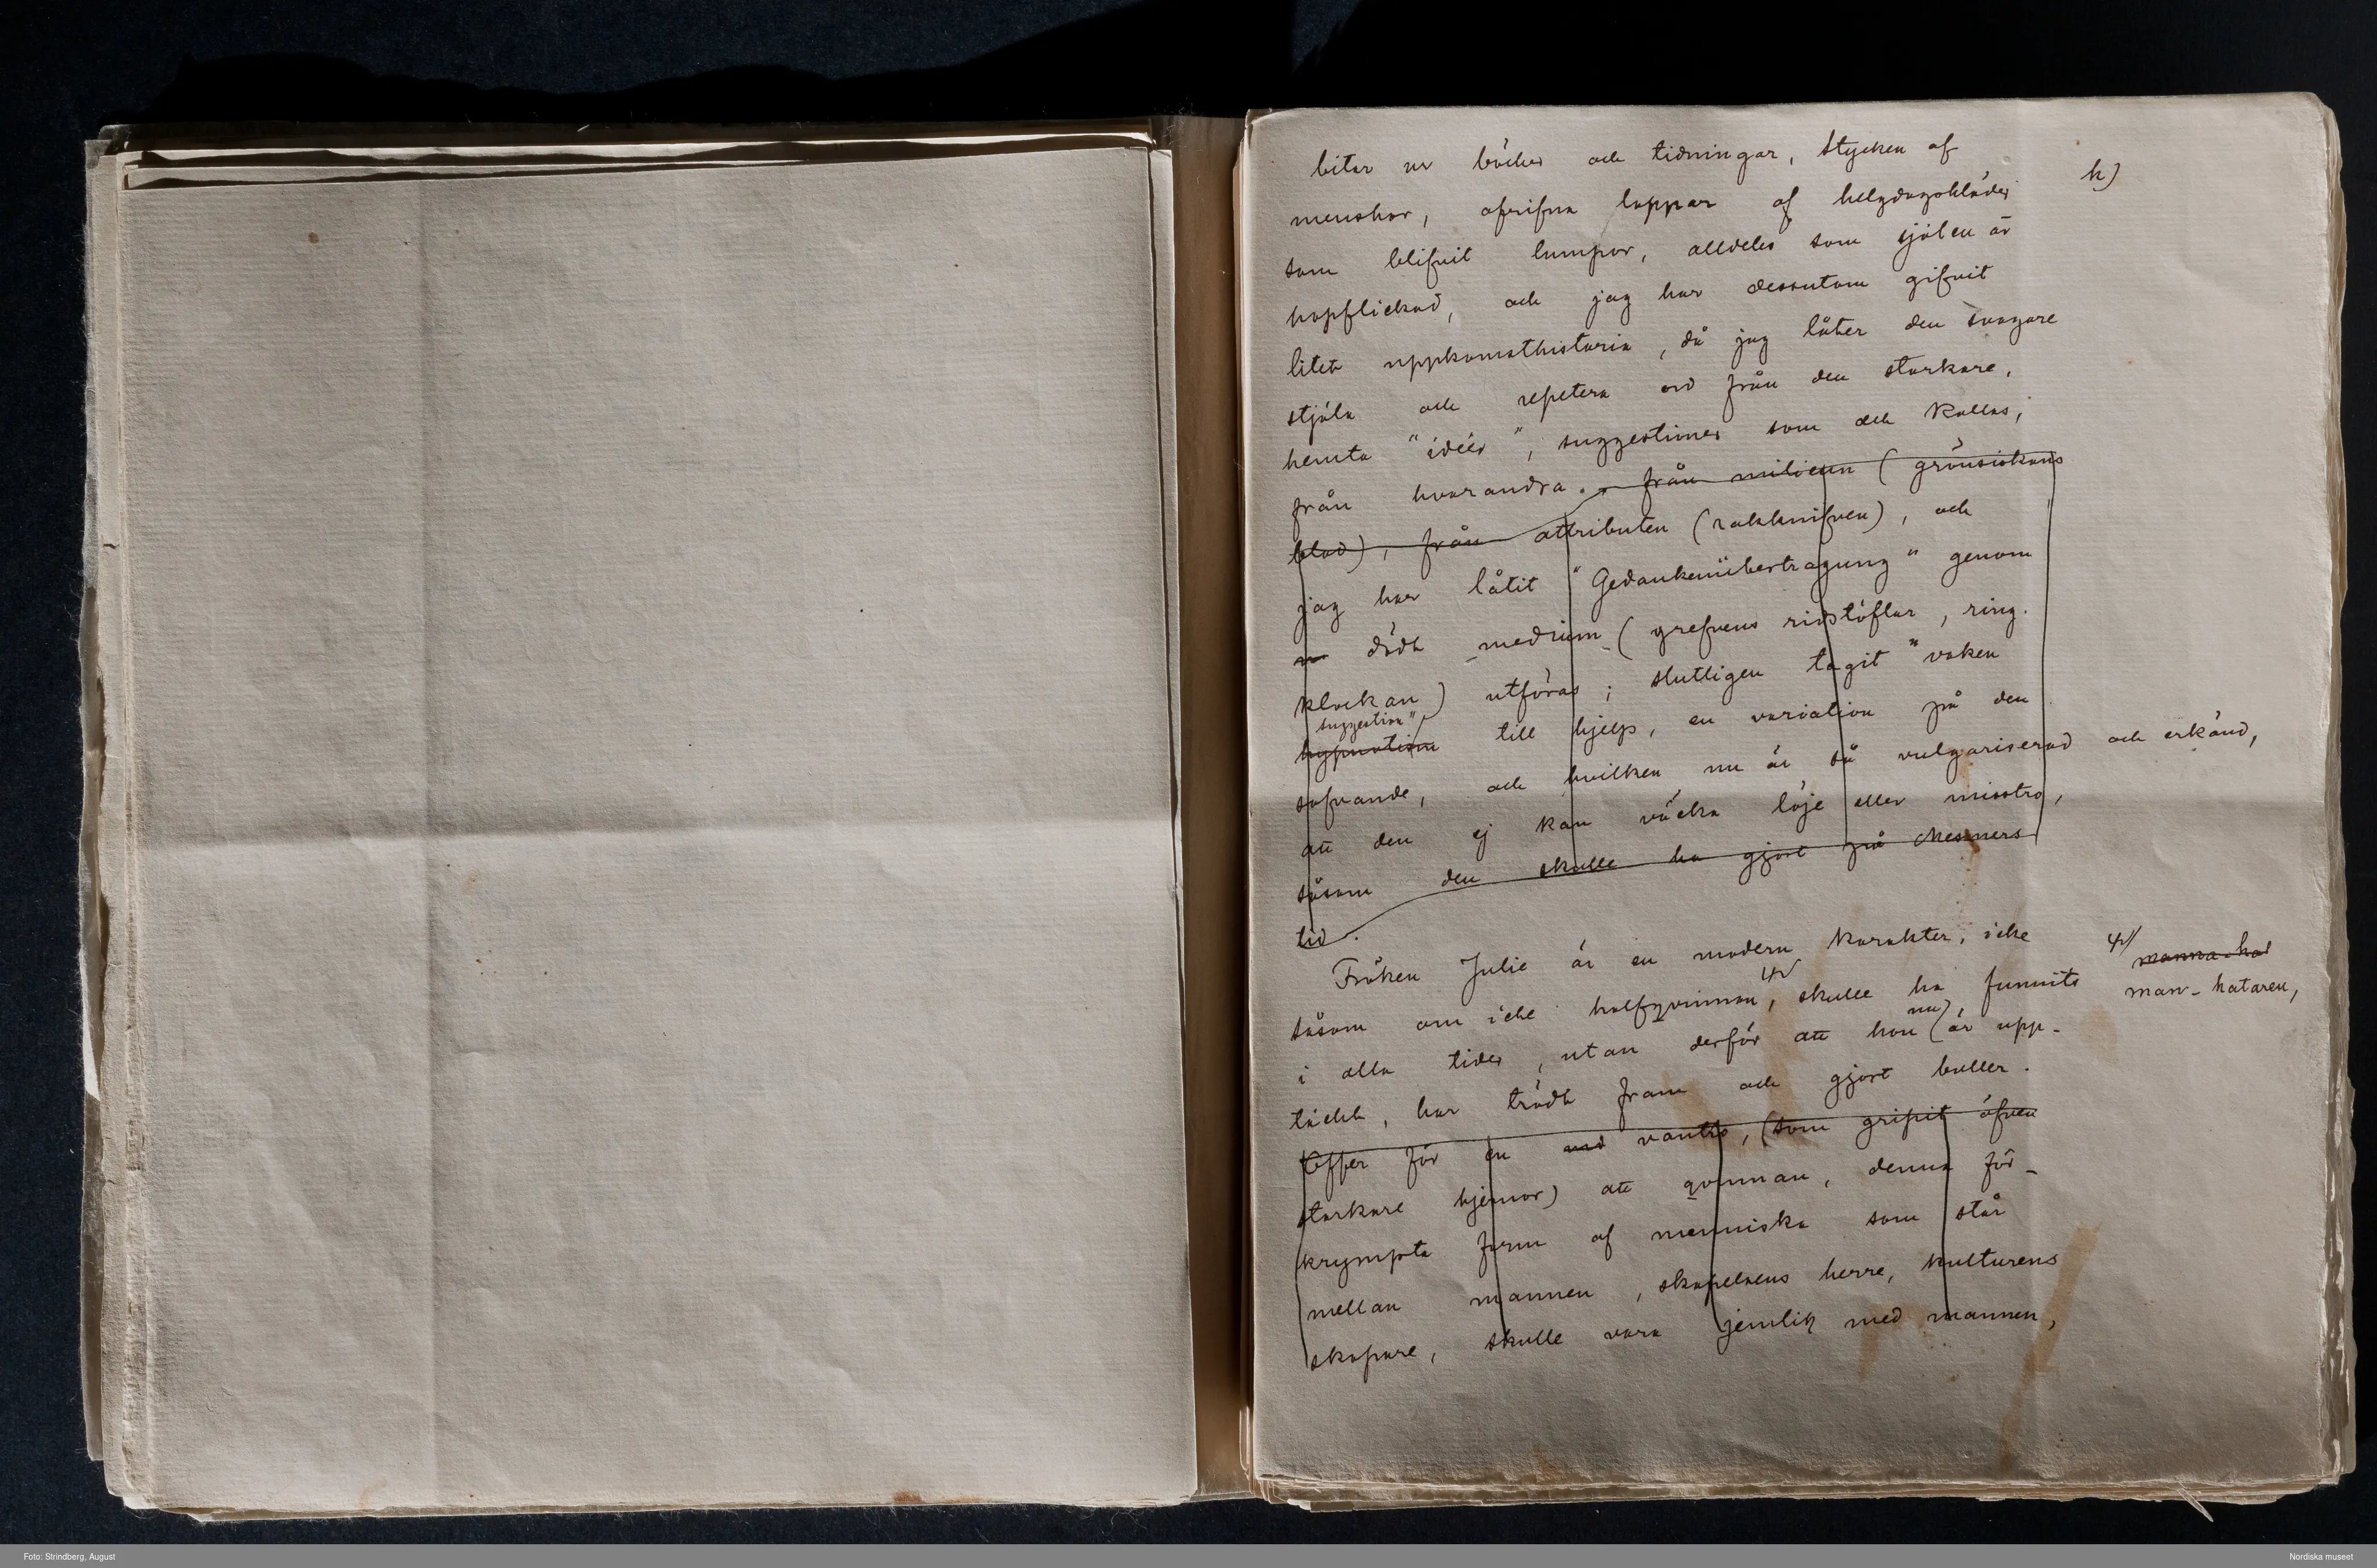 h)
bitar ur böcker och tidningar, stycken af
menskor, afrifna lappar af helgdagskläder
som blifvit lumpor, alldeles som själen är
hopflickad, och jag har dessutom gifvit
litet uppkomsthistoria, då jag låter den svagare
stjäla och repetera ord från den starkare,
hemta "idéer", suggestioner som det kallas,
från hvarandra. från milieun (grönsiskans
blod), från attributen (rakknifven), och
jag har låtit "Gedankenübertragung" genom
dödt medium (grefvens ridstöflar, ring-
klockan) utföras; slutligen tagit "vaken
suggestion"
hypnotism till hjelp, en variation på den
sofvande, och hvilken nu är så vulgariserad och erkänd,
att den ej kan väcka löje eller misstro,
såsom den skulle ha gjort på Mesmers
tid.
Fröken Julie är en modern karakter, icke
såsom om icke halfqvinnan, skulle ha funnits
manna-hat
man-hataren,
i alla tider, utan derför att hon nu är upp-
täckt, har trädt fram och gjort buller.
Offer för en vantro, (som gripit äfven
starkare hjernor) att qvinnan, denna för-
krympta form af menniska som står
mellan mannen, skapelsens herre, kulturens
skapare, skulle vara jemlik med mannen,
Foto: Strindberg, August
Nordiska museet